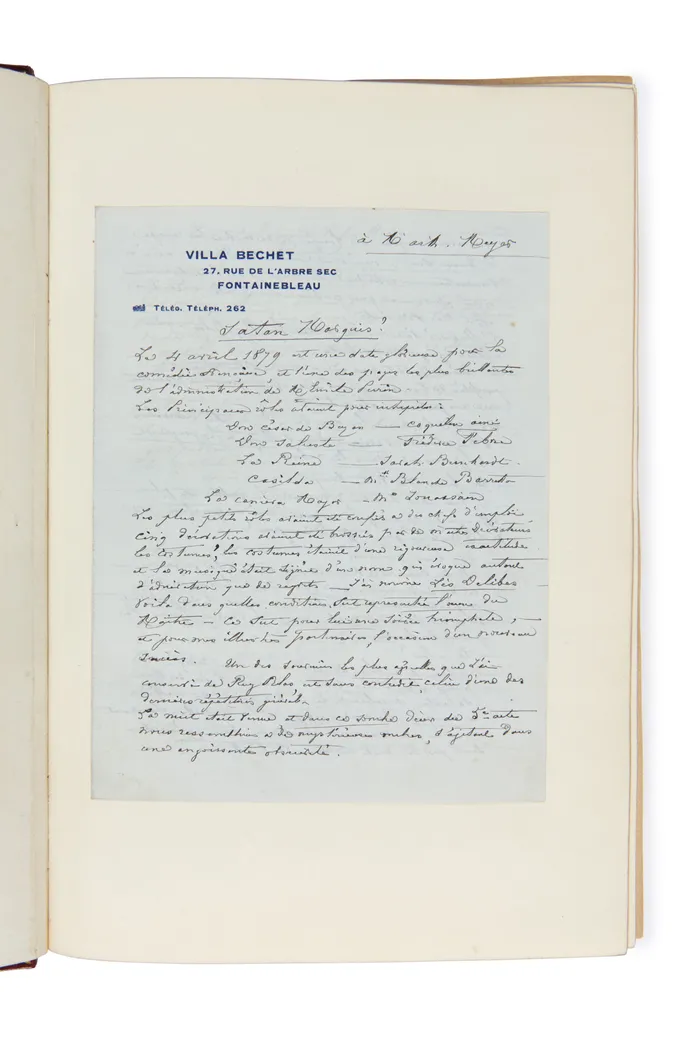 à M. Arth. Meyer
VILLA BECHET
27, RUE DE L'ARBRE SEC
FONTAINEBLEAU
TÉLÉG. TÉLÉPH. 262
Le 4 avril 1879 est une date glorieuse pour la
comédie française et l'une des pages les plus brillantes
de l'administration de M. Emile Perrin
Les principaux rôles étaient pour interprètes :
Don César de Bazan — Coquelin ainé
Don Saluste — Frédéric Febvre
La Reine — Sarah Bernhardt.
Casilda — Blanche Barretta
La camerera Mayor — Me Jouassain
Les plus petits rôles avaient été confiés à des chefs d'emploi
cinq décorations avaient été brossées par de maîtres Décorateurs
les costumes, les costumes étaient d'une rigoureuse exactitude
et la musique était signée d'un nom qui évoque autant
d'admiration que de regrets — J'ai nommé Léo Delibes
Voilà dans quelles conditions fut représentée l'œuvre du
Maître — Ce fut pour lui une soirée triomphale, —
et pour nos illustres partenaires, l'occasion d'un nouveau
succès. Un des souvenirs les plus que j'ai
conservé de Ruy Blas est sans contredit, celui d'une des
dernières répétitions générales
La nuit était venue et dans ce sombre décor du 3e acte
nous ressemblions à de mystérieuses ombres, s'agitant dans
une angoissante obscurité.